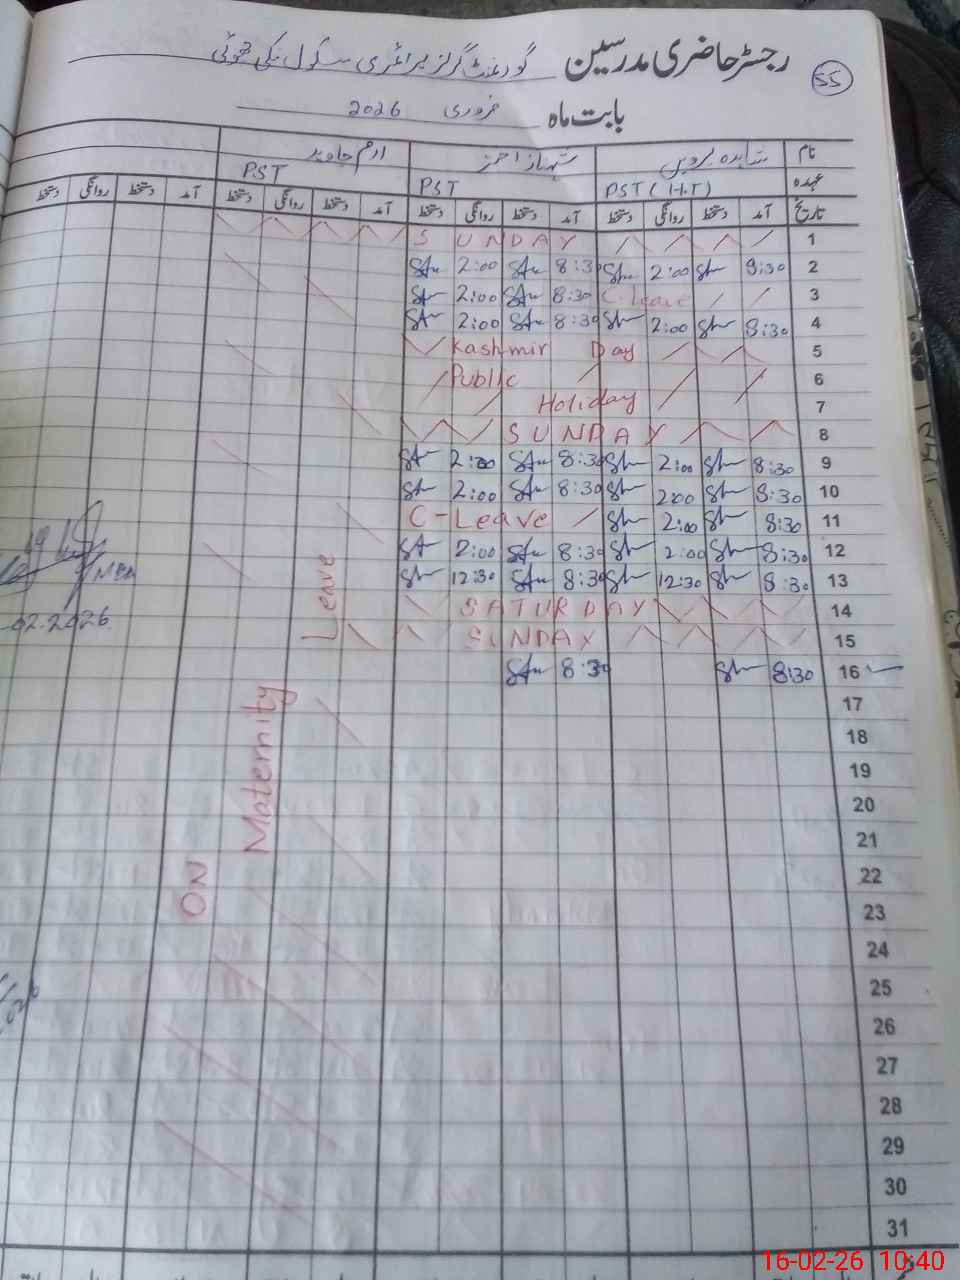 رجسٹر حاضری مدرسین گورنمنٹ گرلز پرائمری سکول
55
بابت ماہ فروری 2026
نام شاہدہ پروین شہناز اختر ارم جاوید
عہدہ PST (I-H.T) PST PST
تاریخ آمد دستخط روانگی دستخط آمد دستخط روانگی دستخط آمد دستخط روانگی دستخط آمد دستخط روانگی دستخط
1 SUNDAY
2 9:30 2:00 8:30 2:00
3 C-Leave 8:30 2:00
4 8:30 2:00 8:30 2:00
5 Kashmir Day
6 Public
7 Holiday
8 SUNDAY
9 8:30 2:00 8:30 2:00
10 8:30 2:00 8:30 2:00
11 8:30 2:00 C-Leave
12 8:30 2:00 8:30 2:00
13 8:30 12:30 8:30 12:30
14 SATURDAY
15 SUNDAY
16 8:30 8:30
17
18
19
20
21
22
23
24
25
26
27
28
29
30
31
ON Maternity Leave
02.2026
16-02-26 10:40